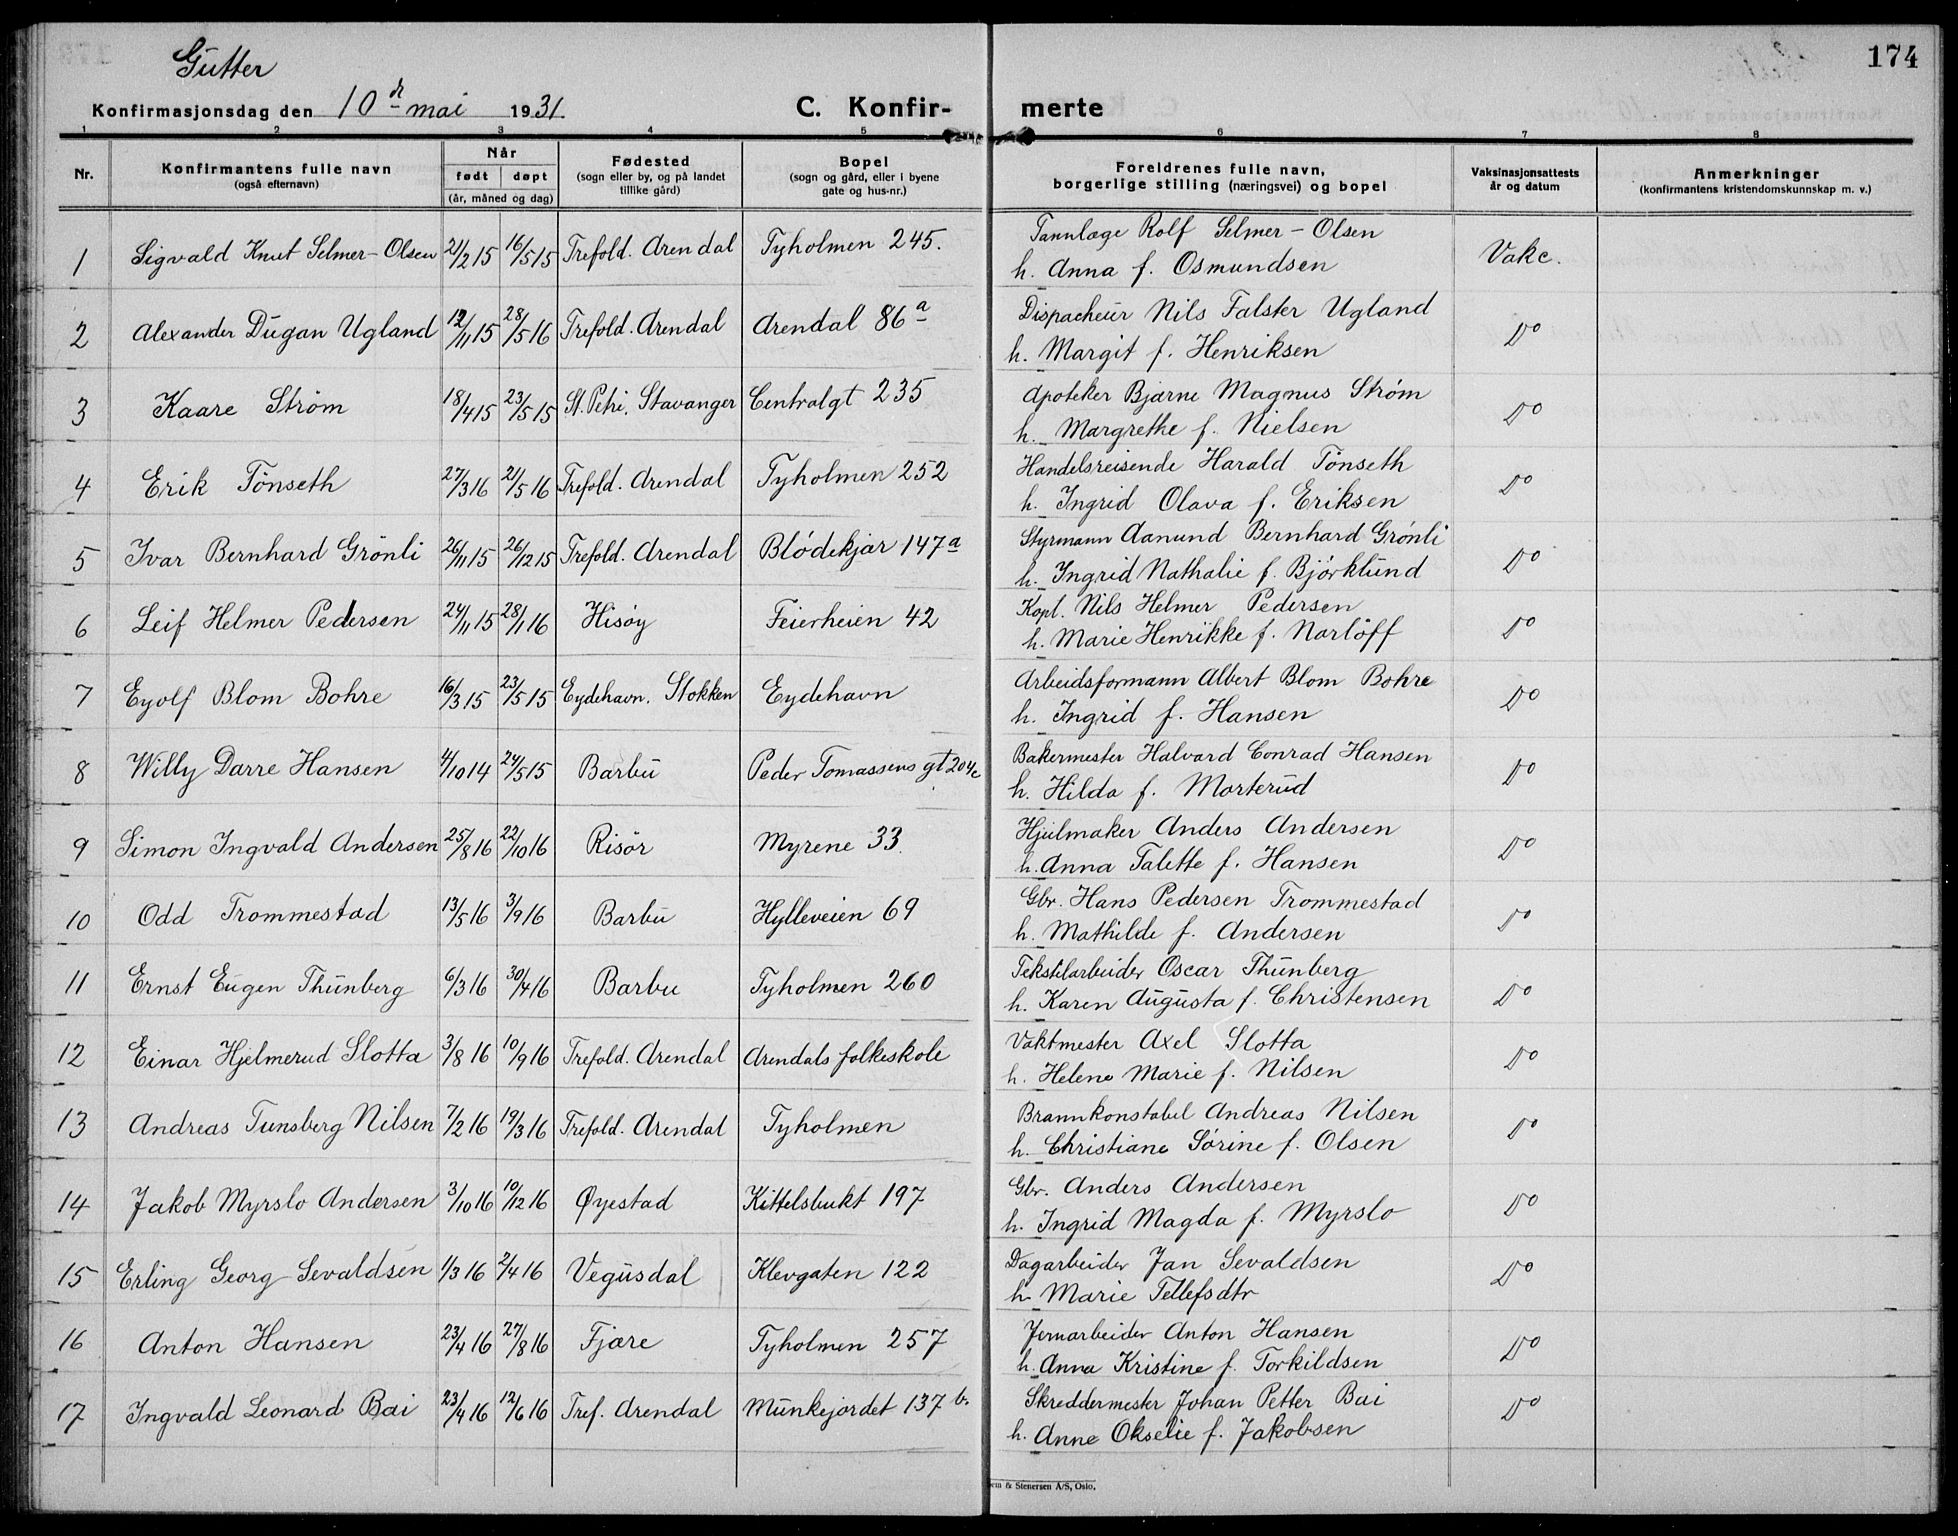 Gutter
174
Konfirmasjonsdag den 10de mai 1931.
C. Konfir- merte
1 2 3 4 5 6 7 8
Nr.
Konfirmantens fulle navn
(også efternavn)
Når
født døpt
(år, måned og dag)
Fødested
(sogn eller by, og på landet
tillike gård)
Bopel
(sogn og gård, eller i byene
gate og hus-nr.)
Foreldrenes fulle navn,
borgerlige stilling (næringsvei) og bopel
Vaksinasjonsattests
år og datum
Anmerkninger
(konfirmantens kristendomskunnskap m. v.)
1 Sigvald Knut Selmer-Olsen 21/2 15 16/5 15 Trefold. Arendal Tyholmen 245. Tannlæge Rolf Selmer-Olsen Vakc.
h. Anna f. Osmundsen
2 Alexander Dugan Ugland 12/11 15 28/5 16 Trefold. Arendal Arendal 86a Dispacheur Nils Falster Ugland Do
h. Margit f. Henriksen
3 Kaare Strøm 18/4 15 23/5 15 St. Petri, Stavanger Centralgt 235 Apoteker Bjarne Magnus Strøm Do
h. Margrethe f. Nielsen
4 Erik Tönseth 27/3 16 21/5 16 Trefold. Arendal Tyholmen 252 Handelsreisende Harald Tönseth Do
h. Ingrid Olava f. Eriksen
5 Ivar Bernhard Grönli 26/11 15 26/12 15 Trefold. Arendal Blödekjær 147a Styrmann Aanund Bernhard Grönli Do
h. Ingrid Nathalie f. Björklund
6 Leif Helmer Pedersen 24/11 15 28/1 16 Hisöy Feierheien 42 Kapt. Nils Helmer Pedersen Do
h. Marie Henrikke f. Narlöff
7 Eyolf Blom Bohre 16/3 15 23/5 15 Eydehavn. Stokken Eydehavn Arbeidsformann Albert Blom Bohre Do
h. Ingrid f. Hansen
8 Willy Darre Hansen 4/10 14 24/5 15 Barbu Peder Tomassens gt 204c Bakermester Halvard Conrad Hansen Do
h. Hilda f. Morterud
9 Simon Ingvald Andersen 25/8 16 22/10 16 Risör Myrene 33 Hjulmaker Anders Andersen Do
h. Anna Talette f. Hansen
10 Odd Trommestad 13/5 16 3/9 16 Barbu Hylleveien 69 Gbr. Hans Pedersen Trommestad Do
h. Mathilde f. Andersen
11 Ernst Eugen Thunberg 6/3 16 30/4 16 Barbu Tyholmen 260 Tekstilarbeider Oscar Thunberg Do
h. Karen Augusta f. Christensen
12 Einar Hjelmerud Slotta 3/8 16 10/9 16 Trefold. Arendal Arendals folkeskole Vaktmester Axel Slotta Do
h. Helene Marie f. Nilsen
13 Andreas Tunsberg Nilsen 7/2 16 19/3 16 Trefold. Arendal Tyholmen Brannkonstabel Andreas Nilsen Do
h. Christiane Sörine f. Olsen
14 Jakob Myrslo Andersen 3/10 16 10/12 16 Øyestad Kittelsbukt 197 Gbr. Anders Andersen Do
h. Ingrid Magda f. Myrslo
15 Erling Georg Sevaldsen 1/3 16 2/4 16 Vegusdal Klevgaten 122 Dagarbeider Jan Sevaldsen Do
h. Marie Tellefsdtr
16 Anton Hansen 23/4 16 27/8 16 Fjære Tyholmen 257 Jernarbeider Anton Hansen Do
h. Anna Kristine f. Torkildsen
17 Ingvald Leonard Bai 23/4 16 12/6 16 Tref. Arendal Munkejordet 137 b. Skreddermester Johan Petter Bai Do
h. Anne Okselie f. Jakobsen
& Stenersen A/S, Oslo.